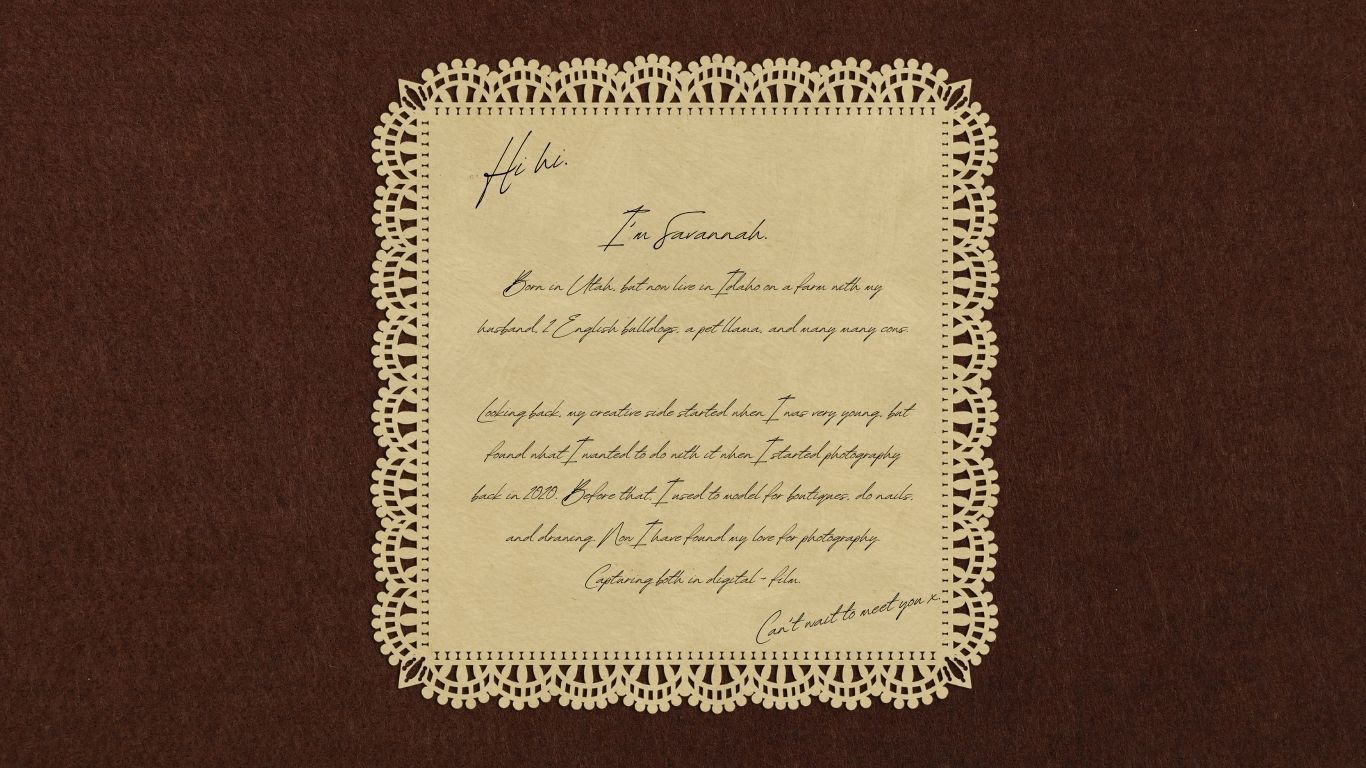 Hi hi.
I'm Savannah.
Born in Utah, but now live in Idaho on a farm with my
husband, 2 English bulldogs, a pet llama, and many many cows.
Looking back, my creative side started when I was very young, but
found what I wanted to do with it when I started photography
back in 2020. Before that, I used to model for boutiques, do nails,
and drawing. Now I have found my love for photography.
Capturing both in digital + film.
Can't wait to meet you x.